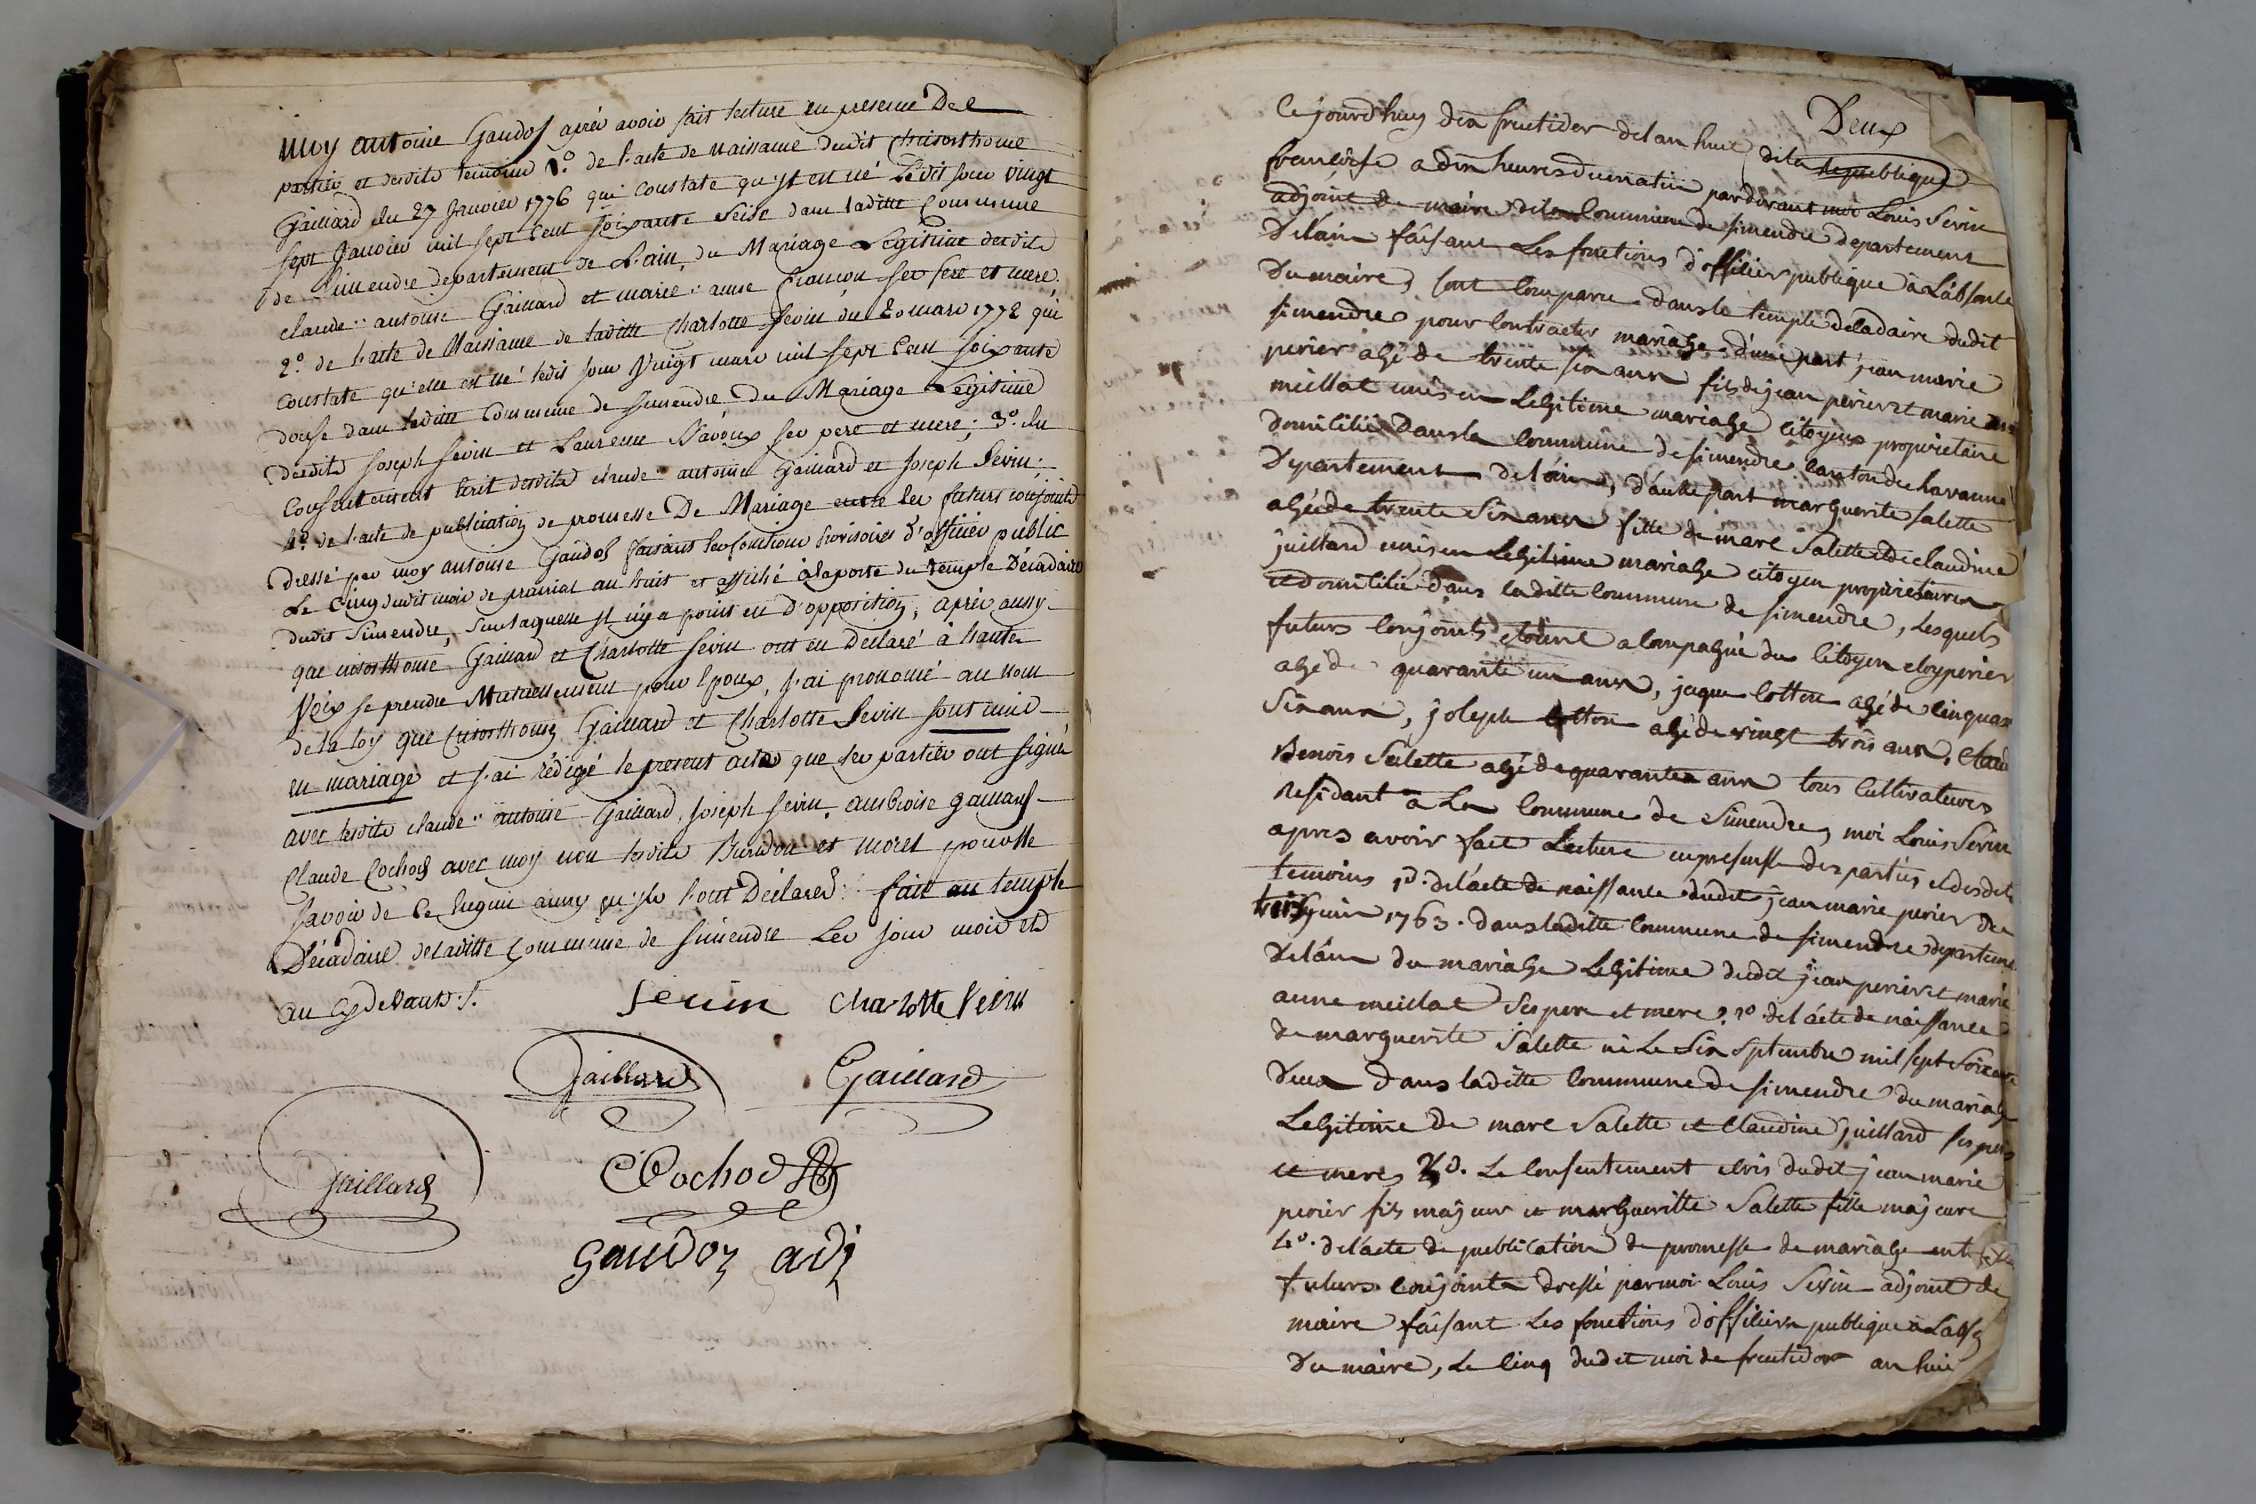 moy antoine Gaudoz aprèz avoir fait lecture en presence De s
partiez et desdits temoins 1.° de l'acte de naissance dudit Chrisosthome
Gaillard du 27 Janvier 1776 qui constate qu'jl est né Ledit jour vingt
sept Janvier mil sept Cent soixante seise dans laditte Commune
de Simendre departement de L'ain, du Mariage Legitime desdits
claude antoine Gaillard et marie anne sес pere et mere.
2.° de l'acte de Naissance de laditte Charlotte Sevin du 20 mars 1772 qui
constate qu'elle est né ledit jour Vingt mars mil sept Cent soixante
douse dans laditte Commune de Simendre Du Mariage Legitime
desdits Joseph Sevin et Laurence ses pere et mere; 3.° du
Consentement écrit desdits claude antoine Gaillard et Joseph Sevin;
4.° de l'acte de publication de promesse De Mariage entre les futurs conjoints
dressé par moy antoine Gaudoz faisant les fonctions provisoires d'officier public
Le Cinq dudit mois de prairial an huit et affiché à la porte du temple Décadaire
dudit Simendre, sur laquelle jl n'y a point eu d'opposition; aprèz aussy
que crisosthome Gaillard et Charlotte Sevin ont eu Declaré à haute
Voix se prendre Mutuellement pour Epoux, j'ai prononcé au nom
de la loy que Crisosthome Gaillard et Charlotte Sevin sont unis
en mariage et j'ai rédigé le present acte que les partiez ont signé
avec lesdits claude antoine Gaillard, Joseph Sevin, ambroise gaillard
Claude Cochod avec moy non lesdits Buridon et morel pour ne
savoir de Ce Enquis ainsy qu'jls l'ont Déclarés: fait au temple
Décadaire de laditte Commune de Simendre Les jour mois et
an Cy devant./.
Sevin Charlotte Sevin
Gaillard Gaillard
Gaillard CCochod
Gaudoz adj
Deux
Ce jourd'huy dix fructidor de l an huit de la republique
francoise a dix heures du matin par devant moi Louis Sevin
adjoint de maire de la Commune de simendre departement
De lain faisant Les fonctions d'offilier publique a Labsence
Du maire, sont Comparu dans le temple deladaire dudit
simendre pour Contracter mariage d'une part jean marie
perier agé de trente six ans fils de jean perier et marie anne
meillat unis en Legitime mariage citoyens proprietaire
Domicilié Dans la Commune de simendre Canton de chavanne
Departement de lain, d'autre part marguerite salette
agée de trente six ans fille de marc Salette et de claudine
juillard unis en Legitime mariage citoyen proprietaires
et domicilié dans laditte Commune de simendre, Lesquels
futurs Conjoints étoient acompagné du Citoyen eloy perier
agé de quarante un ans, jaque Cotton agé de Cinquan
Six ans, joseph Cotton agé de vingt trois ans, Clau
Benois Salette agé de quarante ans tous Cultivateurs
Residant a La Commune de Simendre, moi Louis Sevin
apres avoir fait Lecture en presense des parties et desdit
temoins 1.° de l'acte de naissance dudit jean marie perier du
juin 1763. dans laditte Commune de simendre departeme
De lain du mariage Legitime dudit jean perier et marie
anne meillat Ses pere et mere, 2.° de l'acte de naissance
de marguerite Salette né Le Six Septembre mil sept Soixante
Deux Dans laditte Commune de simendre du mariage
Legitime de marc Salette et Claudine juillard ses peres
et meres 3.° Le Consentement dudit jean marie
perier fils majeur et margueritte Salette fille majeure
4.° de l'acte de publication de promesse de mariage entre les
futurs Conjoints dressé par moi Louis Sevin adjoint de
maire faisant Les fonctions d'offilier publique a Labse
Du maire, Le Cinq dudit moi de fructidor an hui